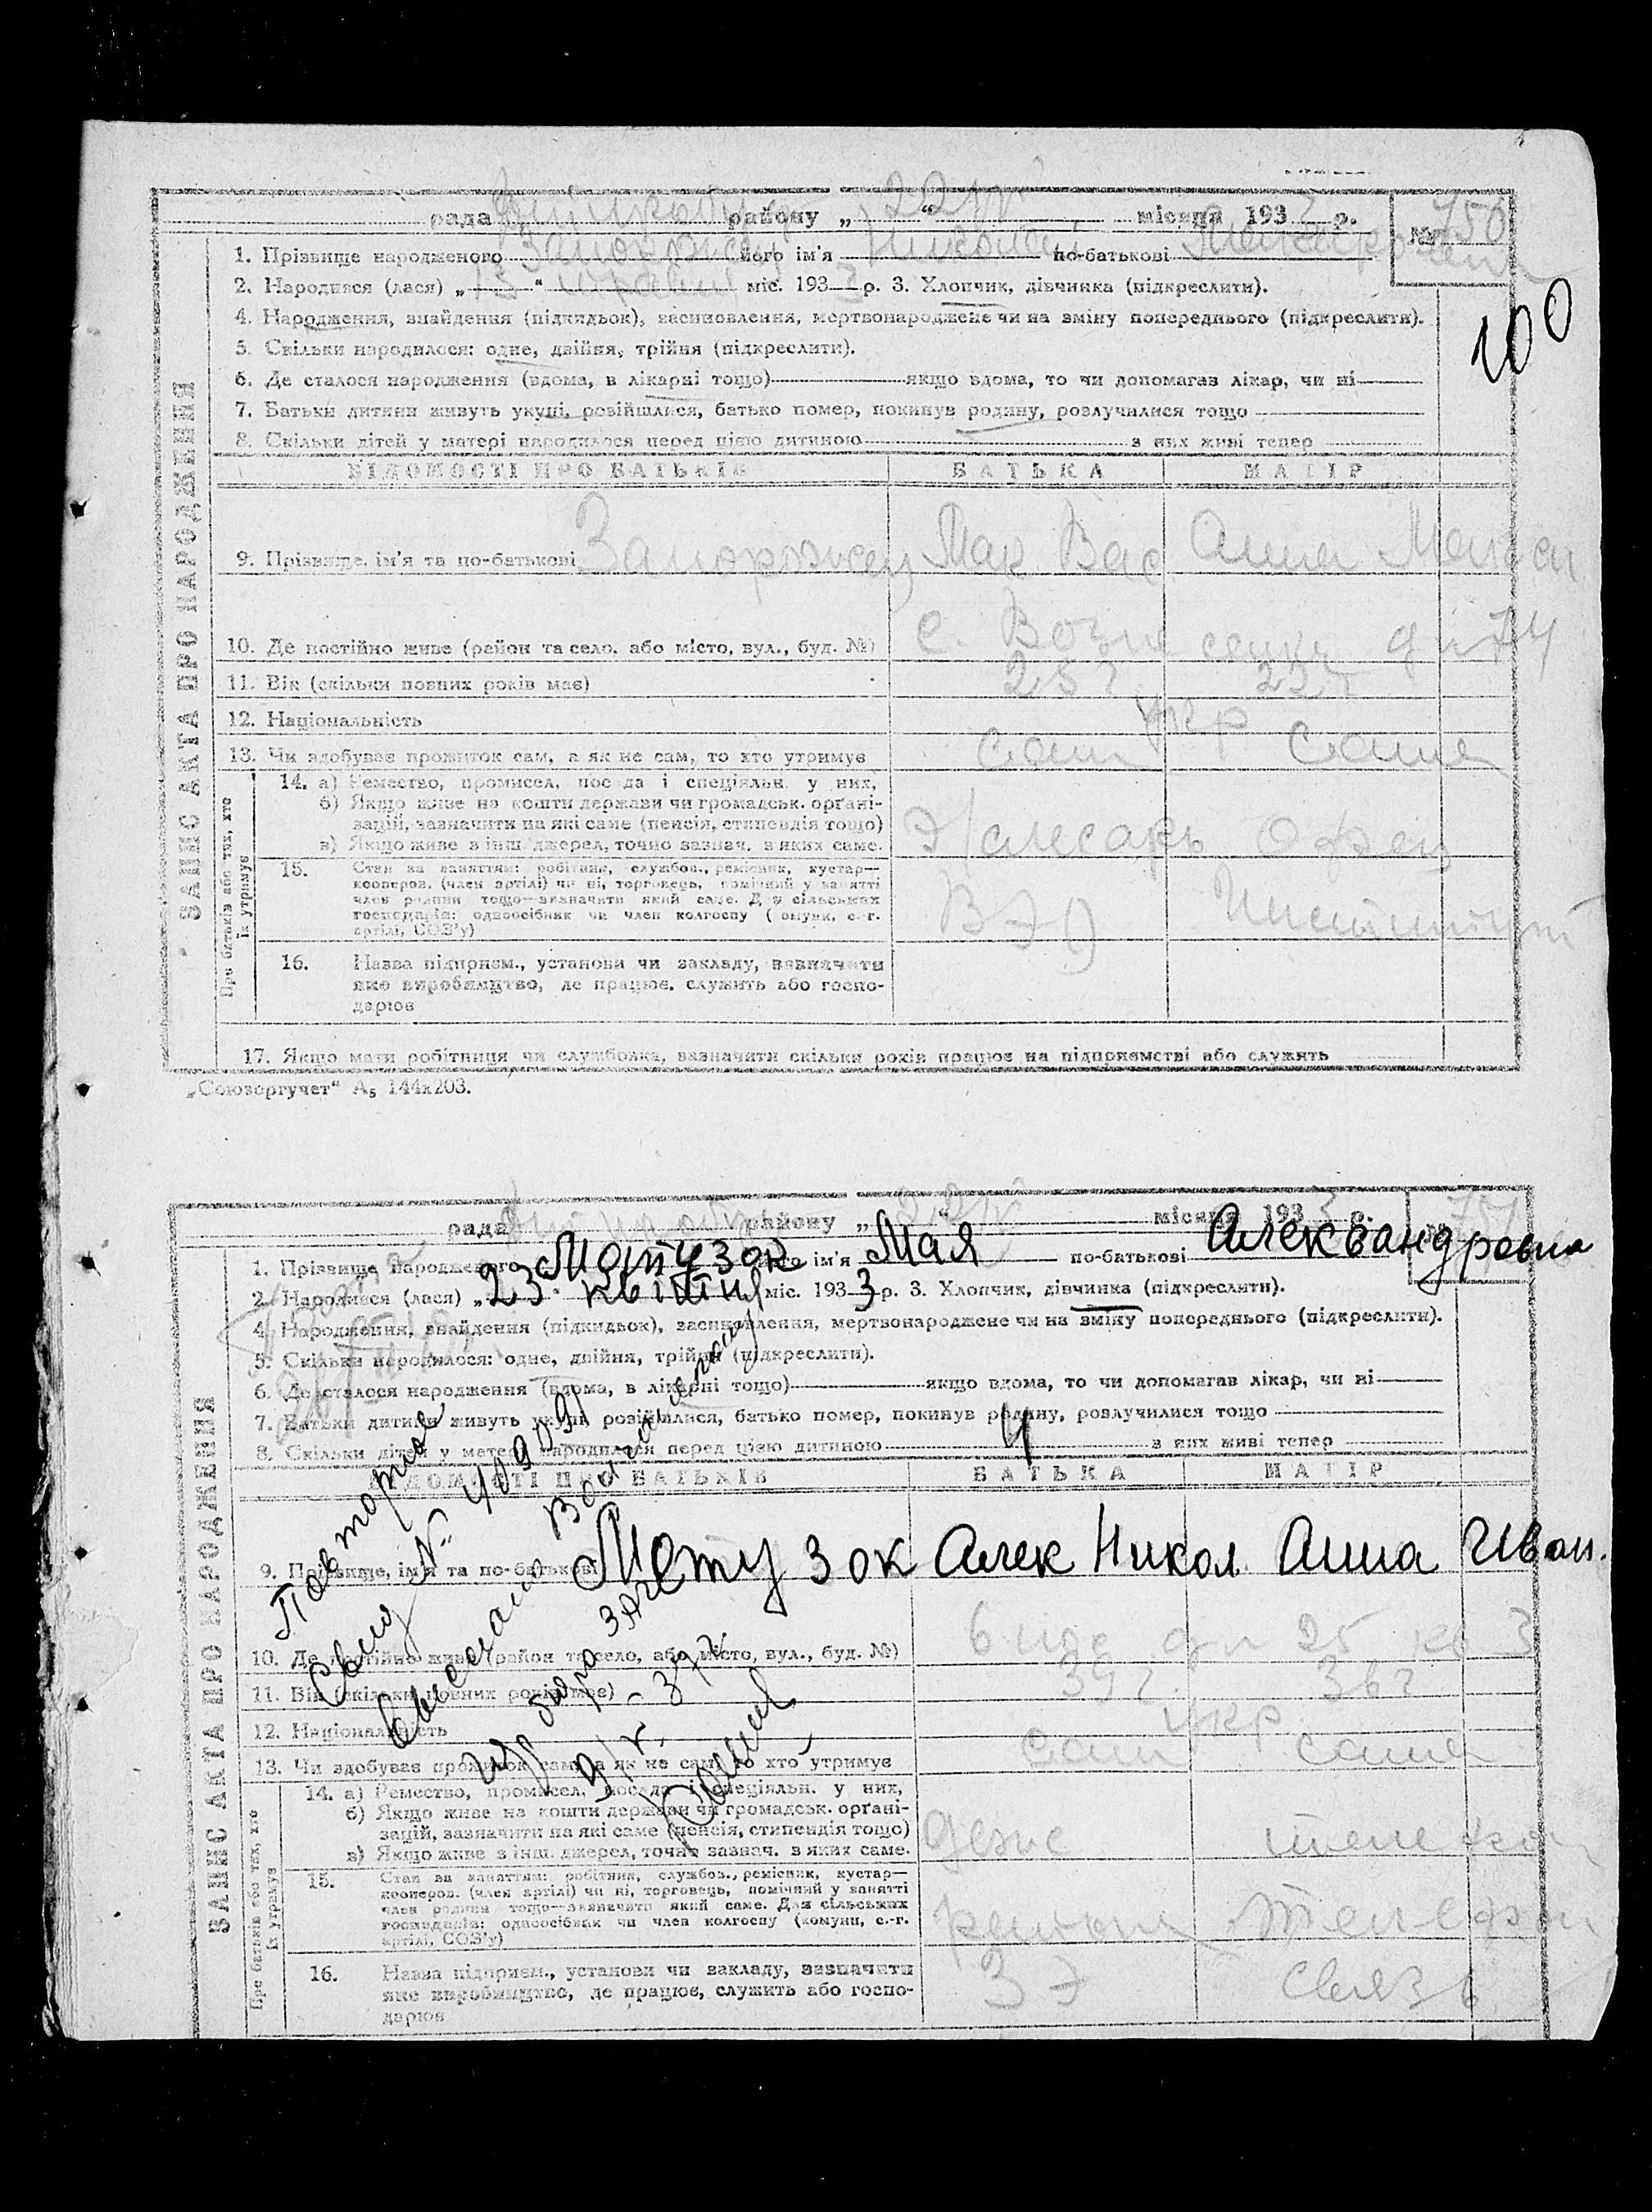 рада району „ 22 “ місяця 193 р. № 750
1. Прізвище народженого Запорожец його ім'я Николай по-батькові
2. Народився (лася) „13“ травня міс. 1933 р. 3. Хлопчик, дівчинка (підкреслити).
100
4. Народження, знайдення (підкидьок), засиновлення, мертвонароджене чи на зміну попереднього (підкреслити).
5. Скільки народилося: одне, двійня, трійня (підкреслити).
6. Де сталося народження (вдома, в лікарні тощо) якщо вдома, то чи допомагав лікар, чи ні
7. Батьки дитини живуть укупі, розійшлися, батько помер, покинув родину, розлучилися тощо
8. Скільки дітей у матері народилося перед цією дитиною з них живі тепер
ЗАПИС АКТА ПРО НАРОДЖЕННЯ
ВІДОМОСТІ ПРО БАТЬКІВ БАТЬКА МАТІР
9. Прізвище, ім'я та по-батькові Запорожец Мак Вас Анна
10. Де постійно живе (район та село, або місто, вул., буд. №) с. Вознесенка 74
11. Вік (скільки повних років має) 25 г 22 г
12. Національність укр
13. Чи здобуває прожиток сам, а як не сам, то хто утримує сам сама
Про батьків або тих, хто їх утримує
14. а) Ремество, промисел, посада і спеціяльн. у них,
б) Якщо живе на кошти держави чи громадськ. орґані-
зацій, зазначити на які саме (пенсія, стипендія тощо)
в) Якщо живе з інш. джерел, точно зазнач. з яких саме. Э/слесарь офиц
15. Стан за заняттям: робітник, службов., ремісник, кустар—
кооперов. (член артілі) чи ні, торговець, помічний у занятті
член родини тощо—визначити який саме. Для сільських
господарів: одноосібник чи член колгоспу (комуни, с.-г.
артілі, СОЗ'у)
ВЭО Институт
16. Назва підприєм., установи чи закладу, зазначити
яке виробництво, де працює, служить або госпо-
дарює
17. Якщо мати робітниця чи службовка, зазначити скільки років працює на підприємстві або служить
„Союзоргучет“ А₅ 144х203.
рада району „ 22 “ місяця 1933 р. 751
1. Прізвище народженого Мотузок його ім'я Мая по-батькові Александровна
2. Народився (лася) „23“ квітня міс. 1933 р. 3. Хлопчик, дівчинка (підкреслити).
4. Народження, знайдення (підкидьок), засиновлення, мертвонароджене чи на зміну попереднього (підкреслити).
5. Скільки народилося: одне, двійня, трійня (підкреслити).
6. Де сталося народження (вдома, в лікарні тощо) якщо вдома, то чи допомагав лікар, чи ні
7. Батьки дитини живуть укупі, розійшлися, батько помер, покинув родину, розлучилися тощо
8. Скільки дітей у матері народилося перед цією дитиною 4 з них живі тепер
ЗАПИС АКТА ПРО НАРОДЖЕННЯ
ВІДОМОСТІ ПРО БАТЬКІВ БАТЬКА МАТІР
Повторное
9. Прізвище, ім'я та по-батькові Мотузок Алек Никол Анна Иван.
10. Де постійно живе (район та село, або місто, вул., буд. №) 6 25 кв 3
11. Вік (скільки повних років має) 39 г. 36 г
12. Національність укр.
13. Чи здобуває прожиток сам, а як не сам, то хто утримує сам сама
Про батьків або тих, хто їх утримує
14. а) Ремество, промисел, посада і спеціяльн. у них,
б) Якщо живе на кошти держави чи громадськ. орґані-
зацій, зазначити на які саме (пенсія, стипендія тощо)
в) Якщо живе з інш. джерел, точно зазнач. з яких саме.
15. Стан за заняттям: робітник, службов., ремісник, кустар—
кооперов. (член артілі) чи ні, торговець, помічний у занятті
член родини тощо—визначити який саме. Для сільських
господарів: одноосібник чи член колгоспу (комуни, с.-г.
артілі, СОЗ'у)
16. Назва підприєм., установи чи закладу, зазначити
яке виробництво, де працює, служить або госпо-
дарює
ЗЭ связь